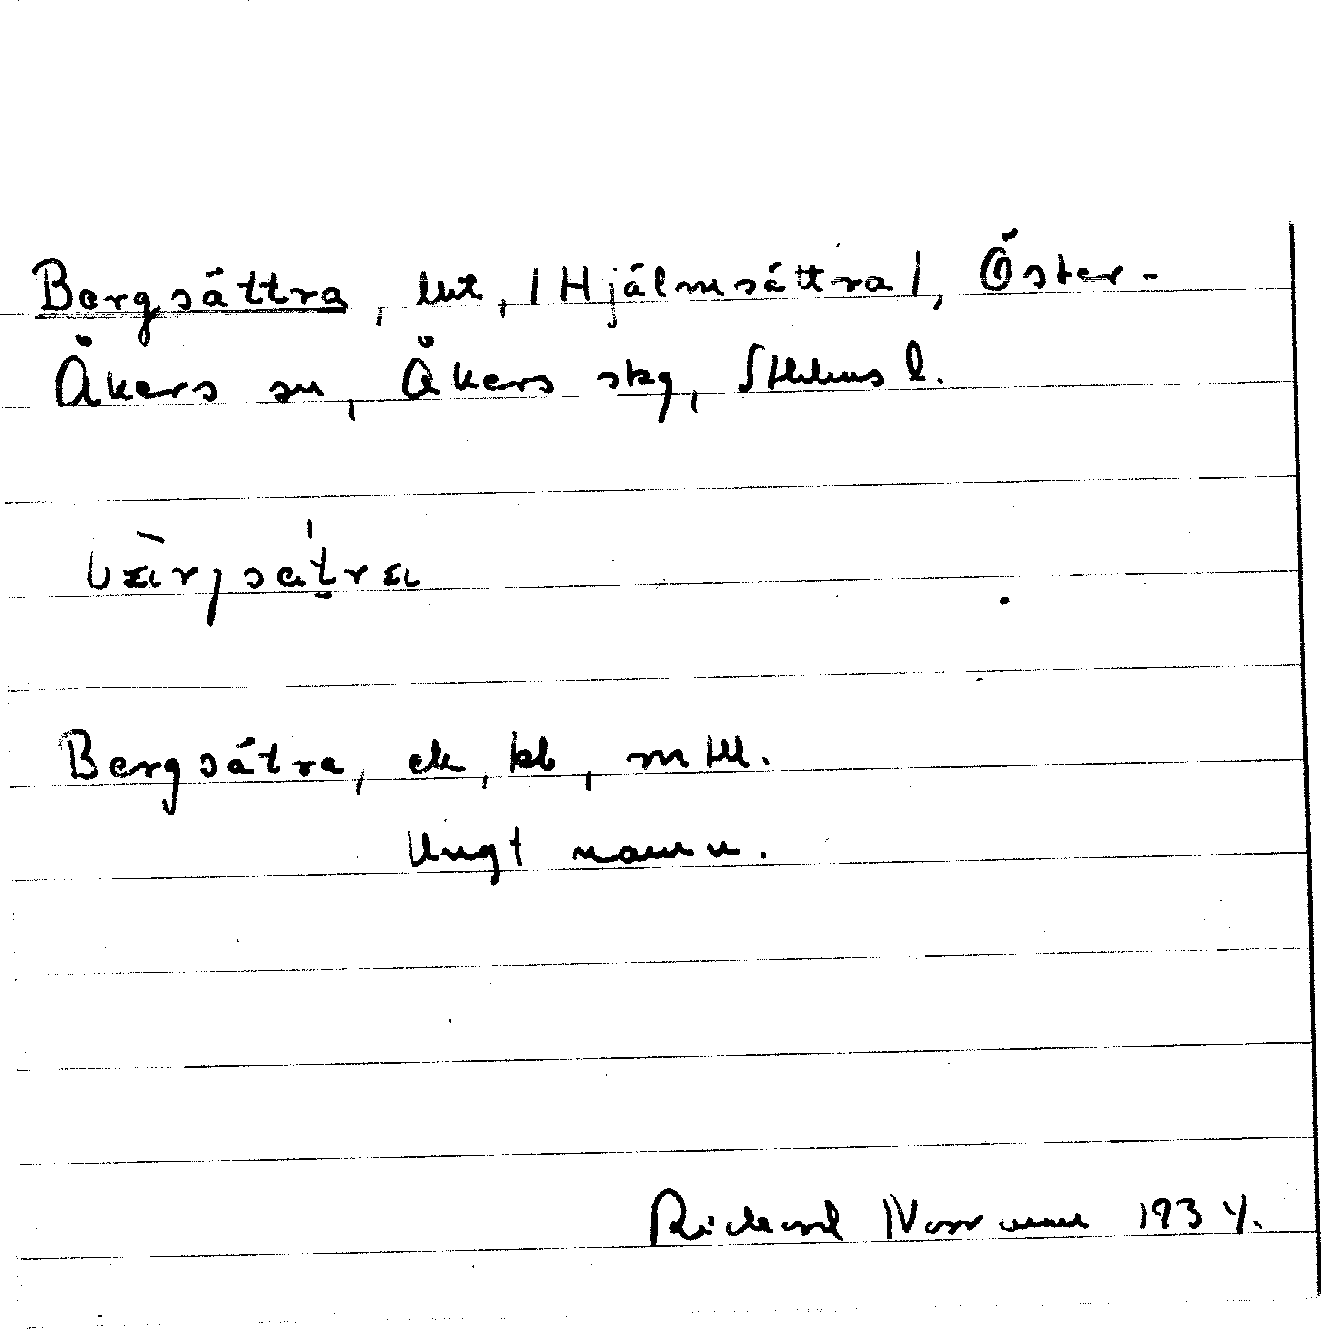 Bergsättra, lht, /Hjälmsättra/, Öster-
Åkers sn, Åkers skg, Sthlms l.
Bergsätra, ek, kb, mtl.
Ungt namn.
Rickard Norrman 1934.